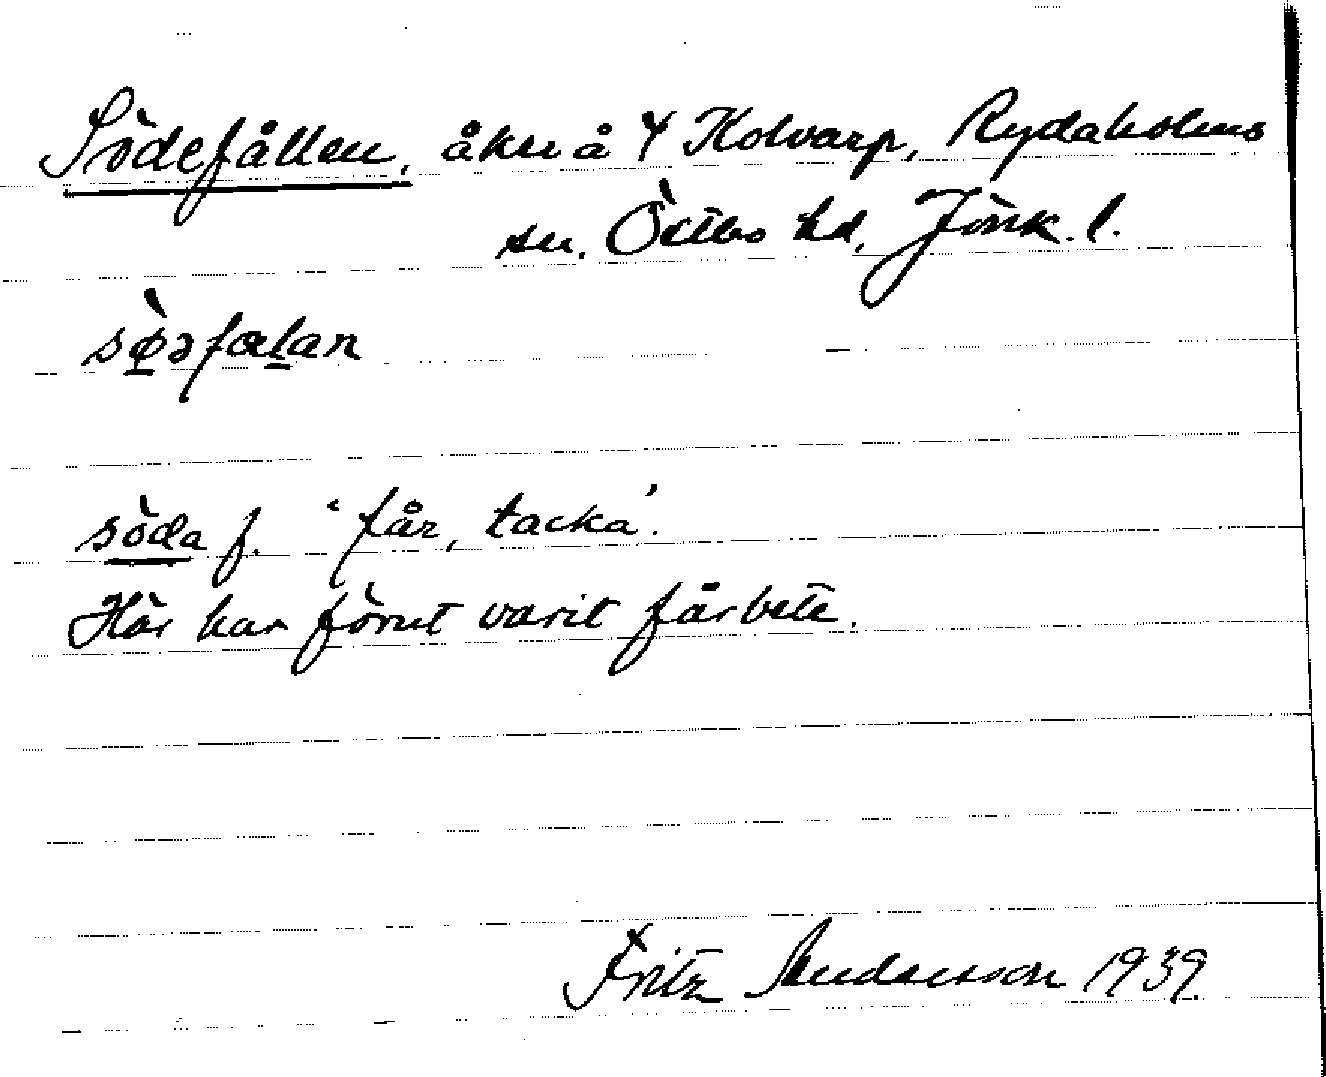 Södefållen, åkrar å 4 Kolvarp, Rydaholms
sn. Östbo hd, Jönk. l.
sø̀əfalan
söda f. 'får, tacka'.
Här har förut varit fårbete.
Fritz Andersson 1939